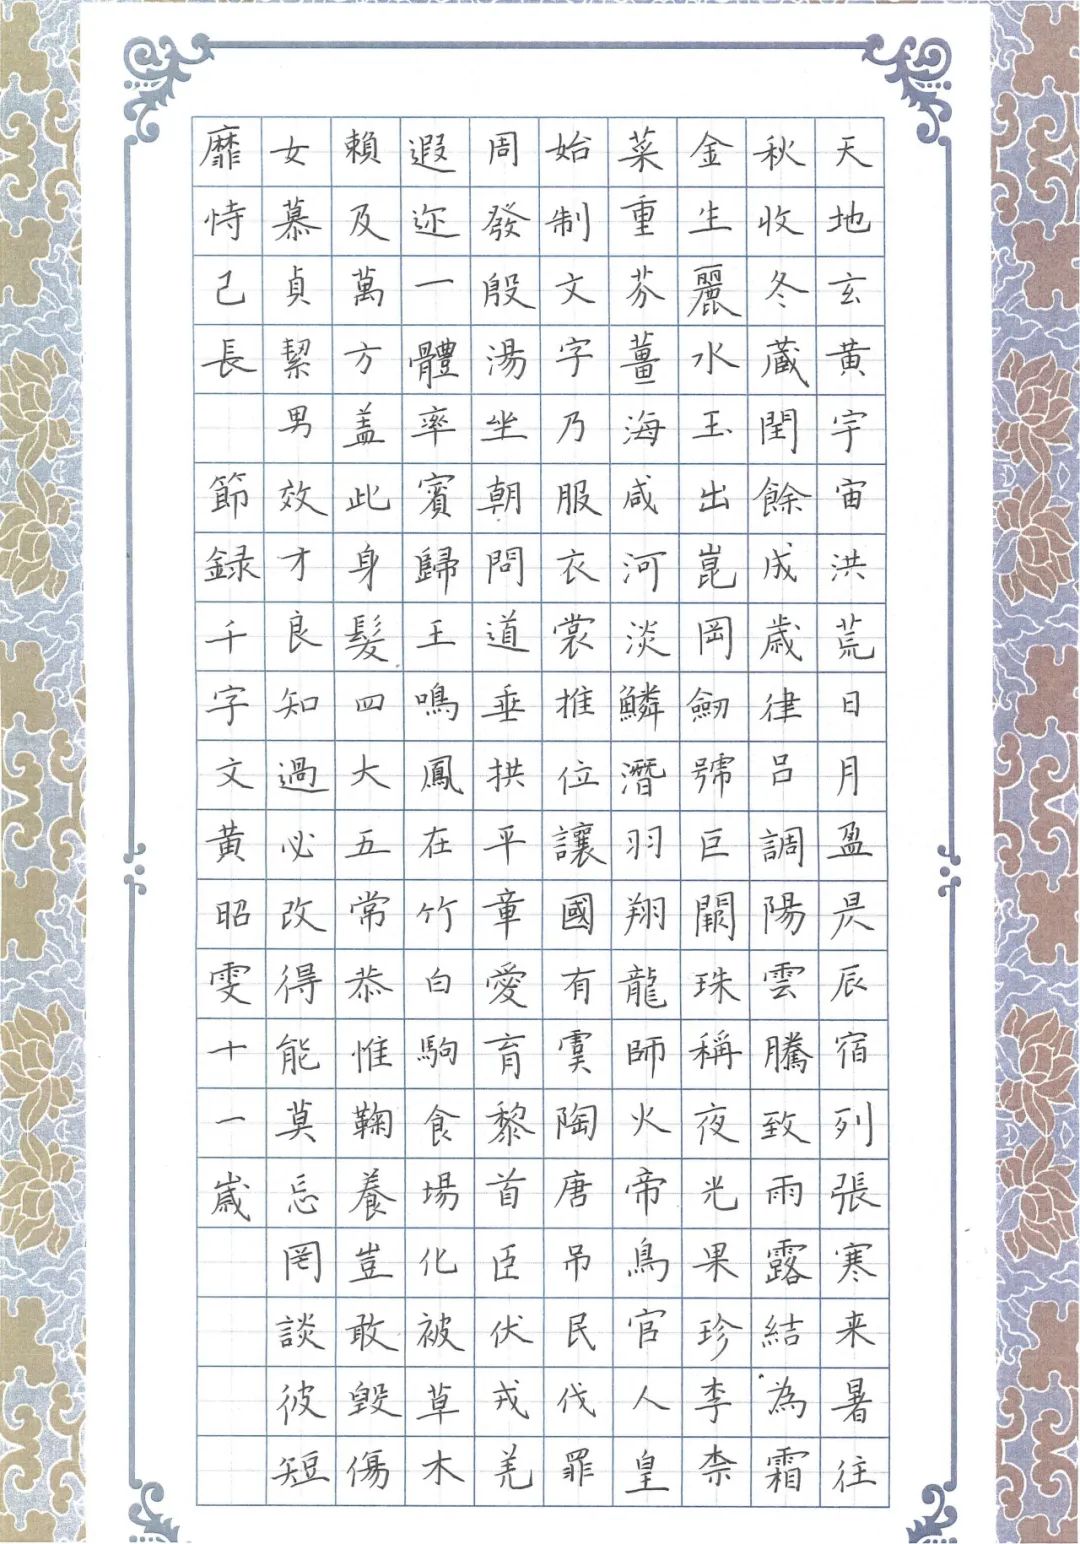 天地玄黄宇宙洪荒日月盈昃辰宿列張寒来暑往
秋收冬蔵閏餘成歳律吕調陽雲騰致雨露結為霜
金生麗水玉出崑岡劒號巨闕珠稱夜光果珍李柰
菜重芥薑海咸河淡鱗潛羽翔龍師火帝鳥官人皇
始制文字乃服衣裳推位讓國有虞陶唐吊民伐罪
周發殷湯坐朝問道垂拱平章愛育黎首臣伏戎羌
遐迩一體率賓歸王鳴鳳在竹白駒食場化被草木
賴及萬方盖此身髮四大五常恭惟鞠養豈敢毀傷
女慕貞絜男效才良知過必改得能莫忘罔談彼短
靡恃己長 節録千字文黄昭雯十一歳